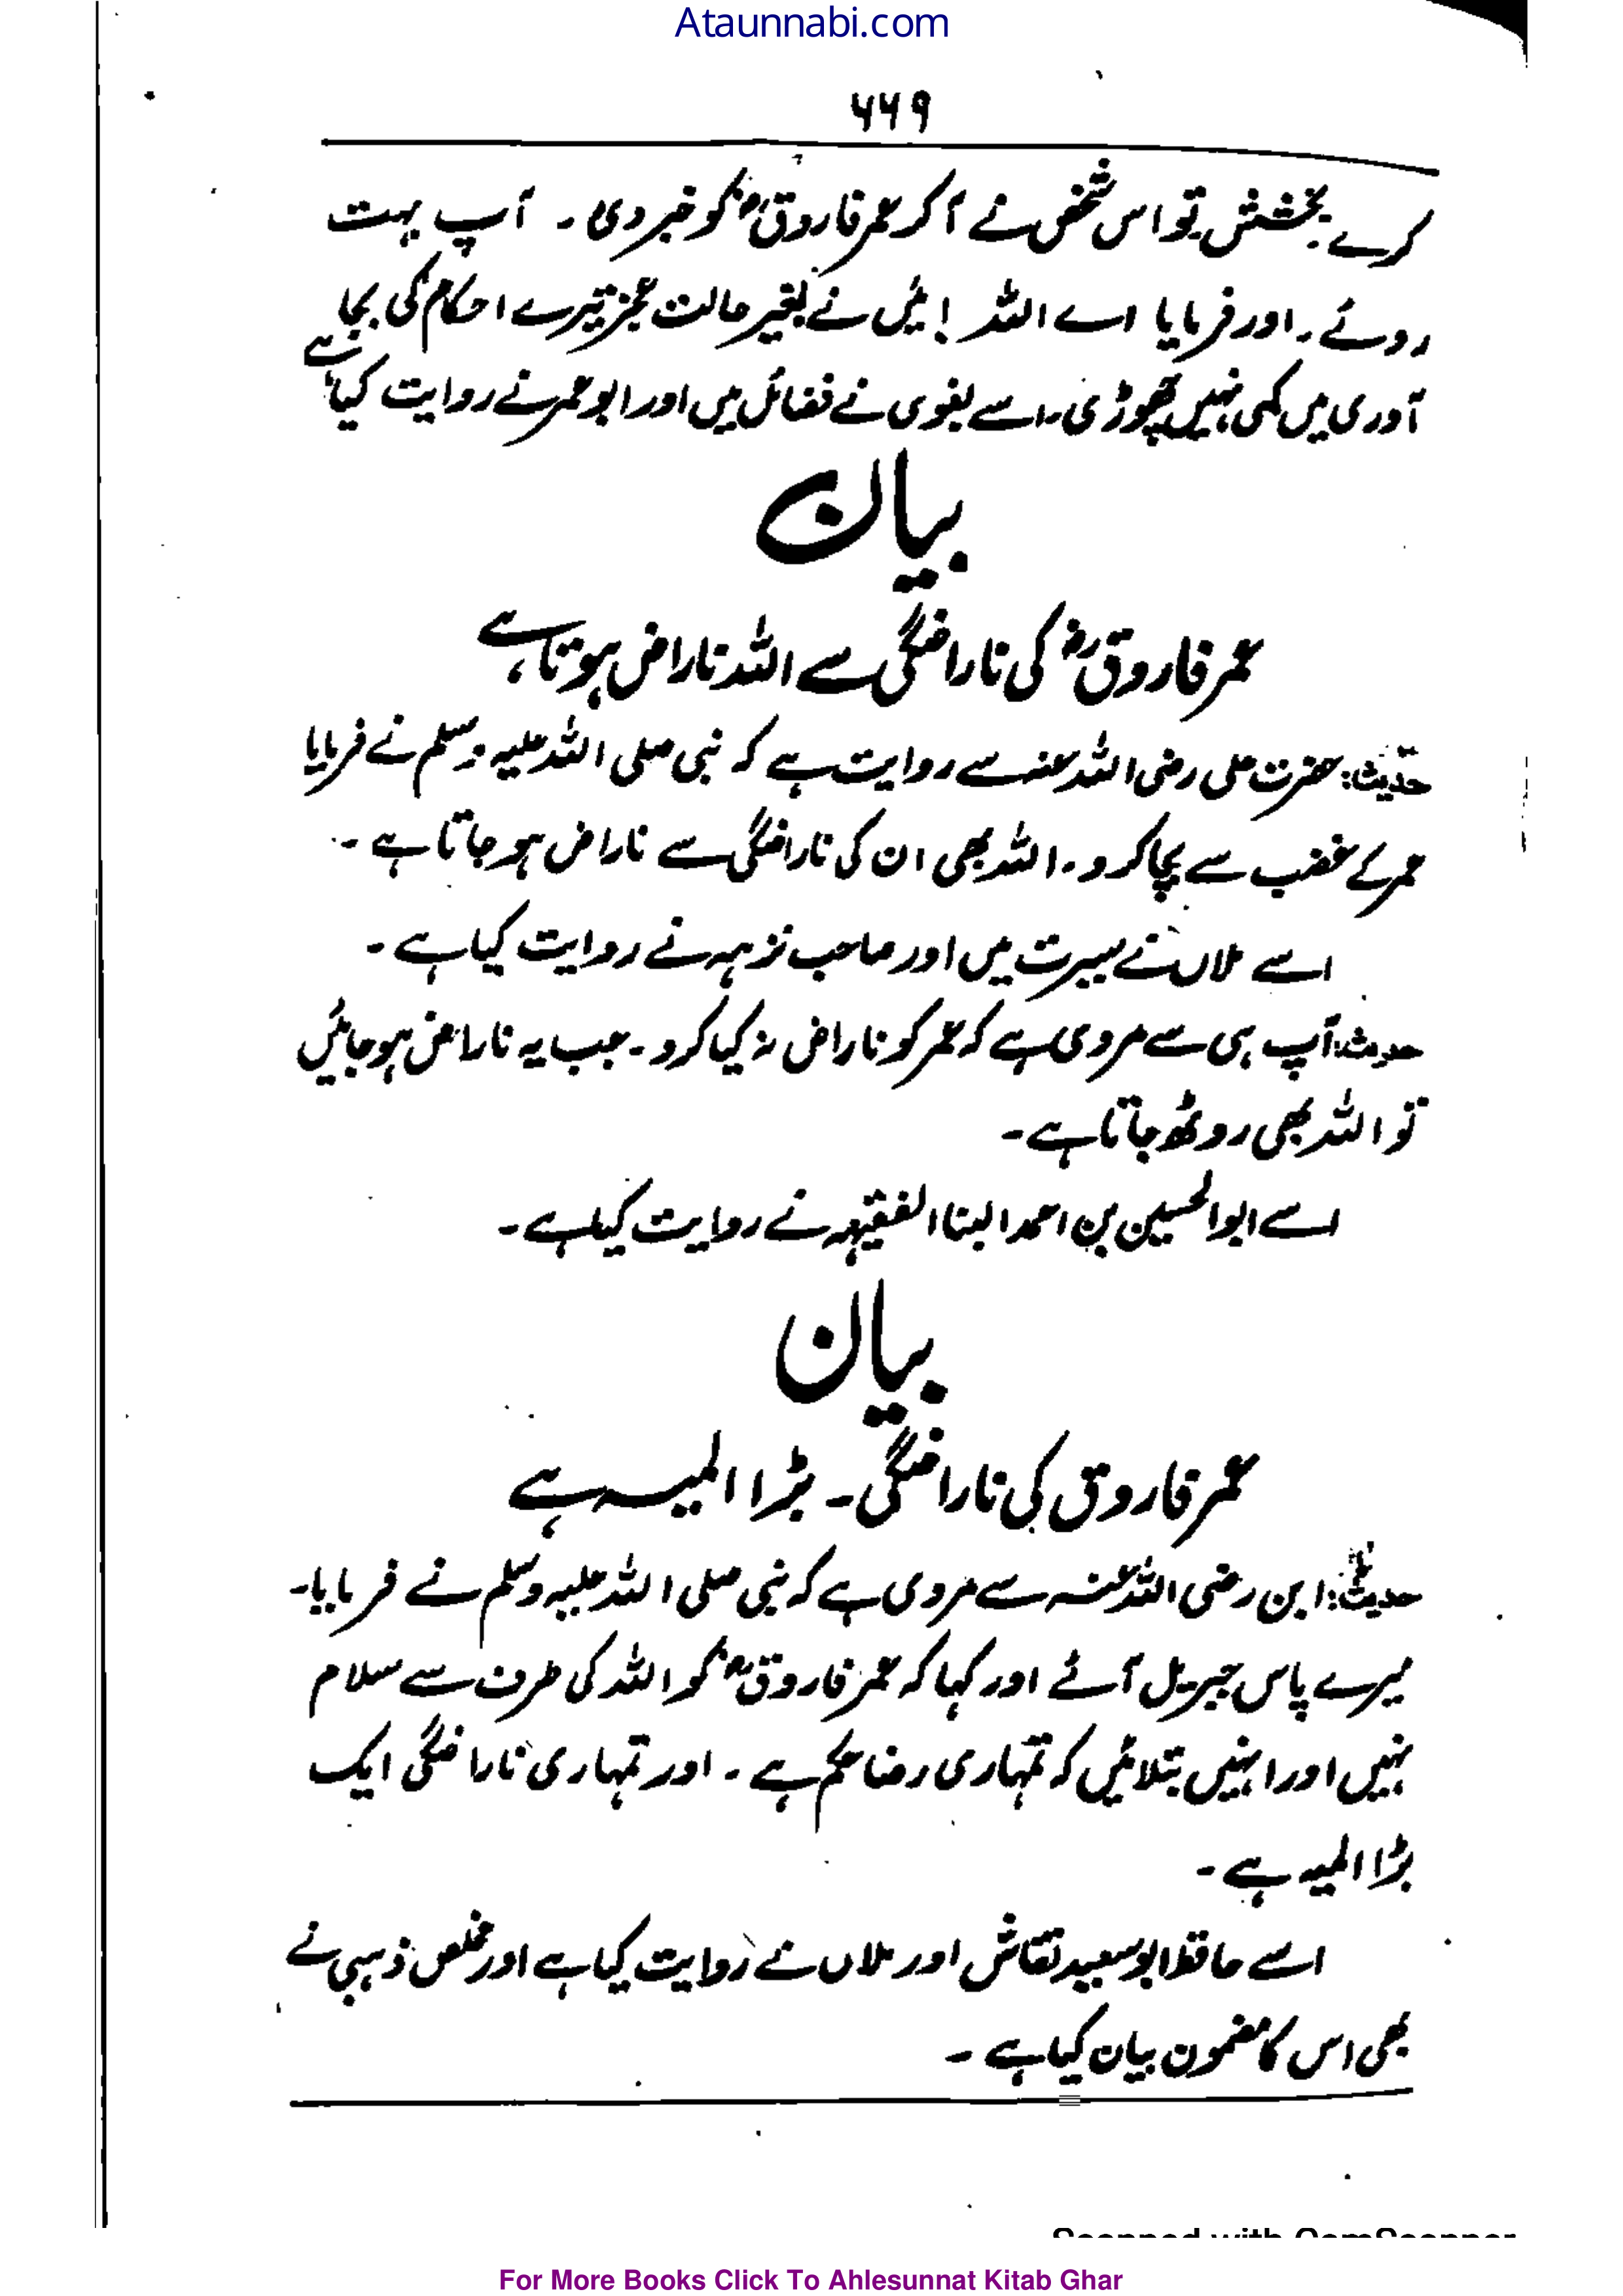 Ataunnabi.com
۶۶۹
کرے بخشش تو اس شخص نے آکر عمر فاروقؓ کو خبر دی ۔ آپ بہت
روئے ۔ اور فرمایا اے اللہ ! میں نے بغیر حالت عجز تیرے احکام کی بجا
آوری میں کمی نہیں چھوڑی ۔ اسے بغوی نے فضائل میں اور ابو عمر نے روایت کیا ہے
بیان
عمر فاروقؓ کی ناراضگی سے اللہ ناراض ہوتا ہے
حدیث: حضرت علی رضی اللہ عنہ سے روایت ہے کہ نبی صلی اللہ علیہ وسلم نے فرمایا
عمر کے غضب سے بچا کرو ۔ اللہ بھی ان کی ناراضگی سے ناراض ہو جاتا ہے ۔
اسے ملاں نے سیرت میں اور صاحب نزہہ نے روایت کیا ہے ۔
حدیث: آپ ہی سے مروی ہے کہ عمر کو ناراض نہ کیا کرو ۔ جب یہ ناراض ہو جائیں
تو اللہ بھی روٹھ جاتا ہے ۔
اسے ابوالحسین بن احمد البنا الفقیہہ نے روایت کیا ہے ۔
بیان
عمر فاروق کی ناراضگی ۔ بڑا المیہ ہے
حدیث: ابن رضی اللہ عنہ سے مروی ہے کہ نبی صلی اللہ علیہ وسلم نے فرمایا ۔
میرے پاس جبریل آئے اور کہا کہ عمر فاروقؓ کو اللہ کی طرف سے سلام
نہیں اور انہیں بتلائیں کہ تمہاری رضا حکم ہے ۔ اور تمہاری ناراضگی ایک
بڑا المیہ ہے ۔
اسے حافظ ابوسعید نقاش اور ملاں نے روایت کیا ہے اور مخلص ذہبی نے
بھی اس کا مضمون بیان کیا ہے ۔
Scanned with CamScanner
For More Books Click To Ahlesunnat Kitab Ghar